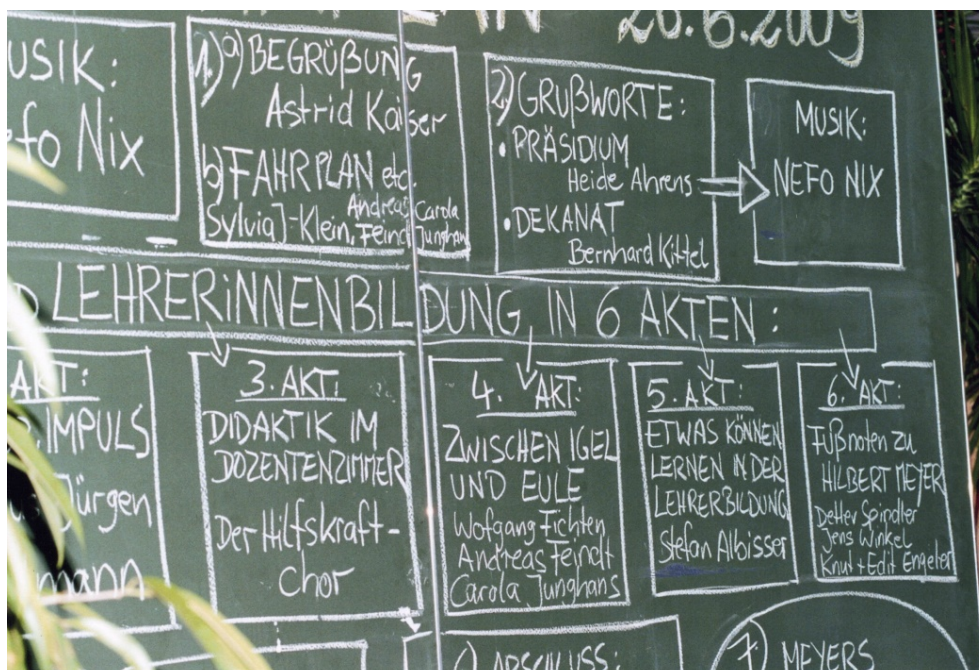 26.6.2009
MUSIK:
Nefo Nix
1.) a) BEGRÜßUNG
Astrid Kaiser
b) FAHRPLAN etc.
Sylvia J-Klein, Andreas Feindt, Carola Junghans
2.) GRUßWORTE:
• PRÄSIDIUM
Heide Ahrens
• DEKANAT
Bernhard Kittel
MUSIK:
NEFO NIX
LEHRERiNNENBILDUNG IN 6 AKTEN:
AKT:
IMPULS
Jürgen
mann
3. AKT:
DIDAKTIK IM
DOZENTENZIMMER
Der Hilfskraft-
Chor
4. AKT:
ZWISCHEN IGEL
UND EULE
Wofgang Fichten
Andreas Feindt
Carola Junghans
5. AKT:
ETWAS KÖNNEN
LERNEN IN DER
LEHRERBILDUNG
Stefan Albisser
6. AKT:
Fußnoten zu
HILBERT MEYER
Detlev Spindler
Jens Winkel
Knut + Edit Engeler
ABSCHLUSS:
7) MEYERS